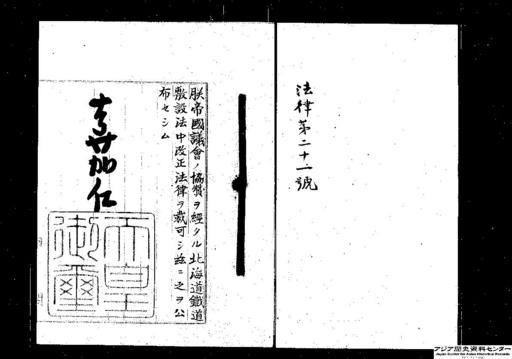 法律第二十一號
朕帝國議會ノ協贊ヲ經タル北海道鐵道
敷設法中改正法律ヲ裁可シ茲ニ之ヲ公
布セシム
嘉仁
天皇
御璽
アジア歴史資料センター
Japan Center for Asian Historical Records